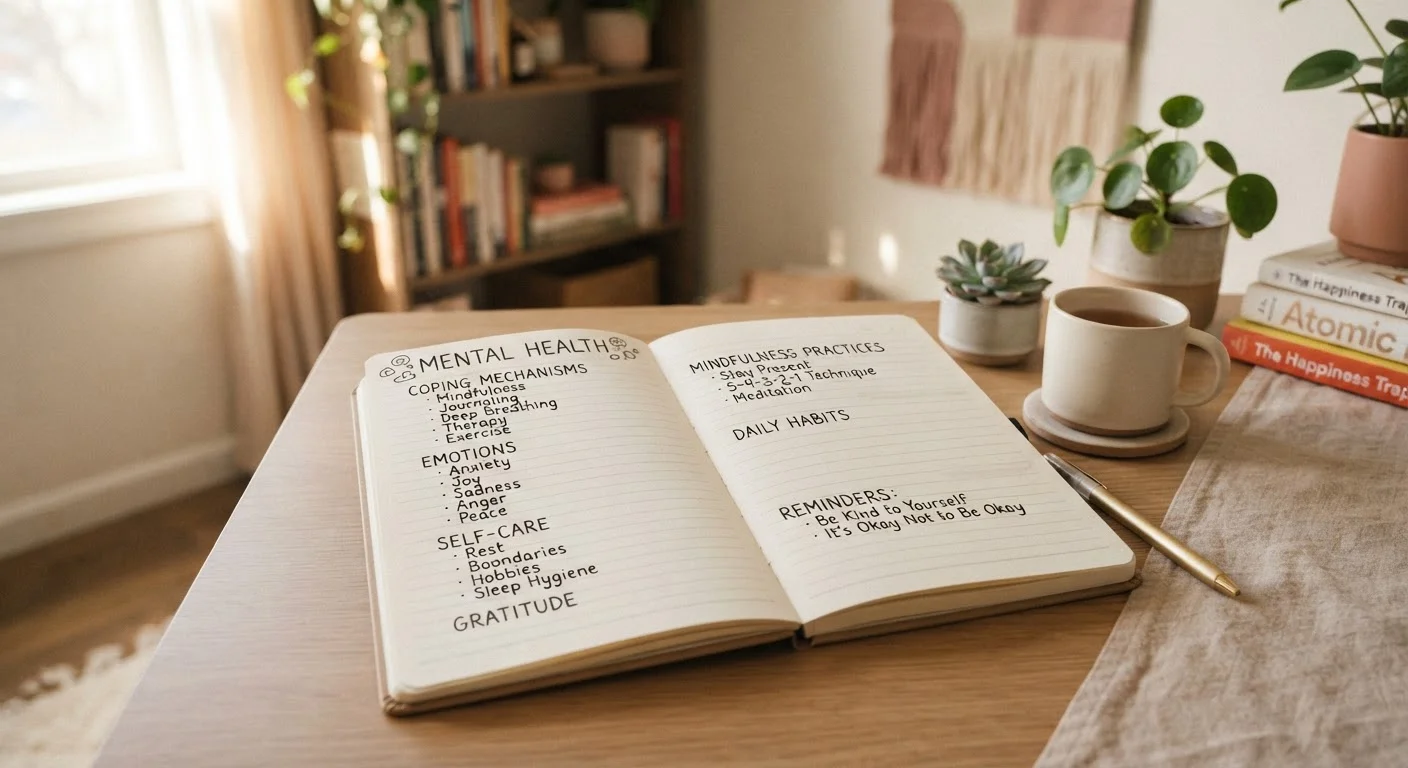 MENTAL HEALTH
COPING MECHANISMS
· Mindfulness
· Journaling
· Deep Breathing
· Therapy
· Exercise
EMOTIONS
· Anxiety
· Joy
· Sadness
· Anger
· Peace
SELF-CARE
· Rest
· Boundaries
· Hobbies
· Sleep Hygiene
GRATITUDE
MINDFULNESS PRACTICES
· Stay Present
· 5-4-3-2-1 Technique
· Meditation
DAILY HABITS
REMINDERS:
· Be Kind to Yourself
· It's Okay Not to Be Okay
The Happiness Trap
Atomic
The Happiness Trap